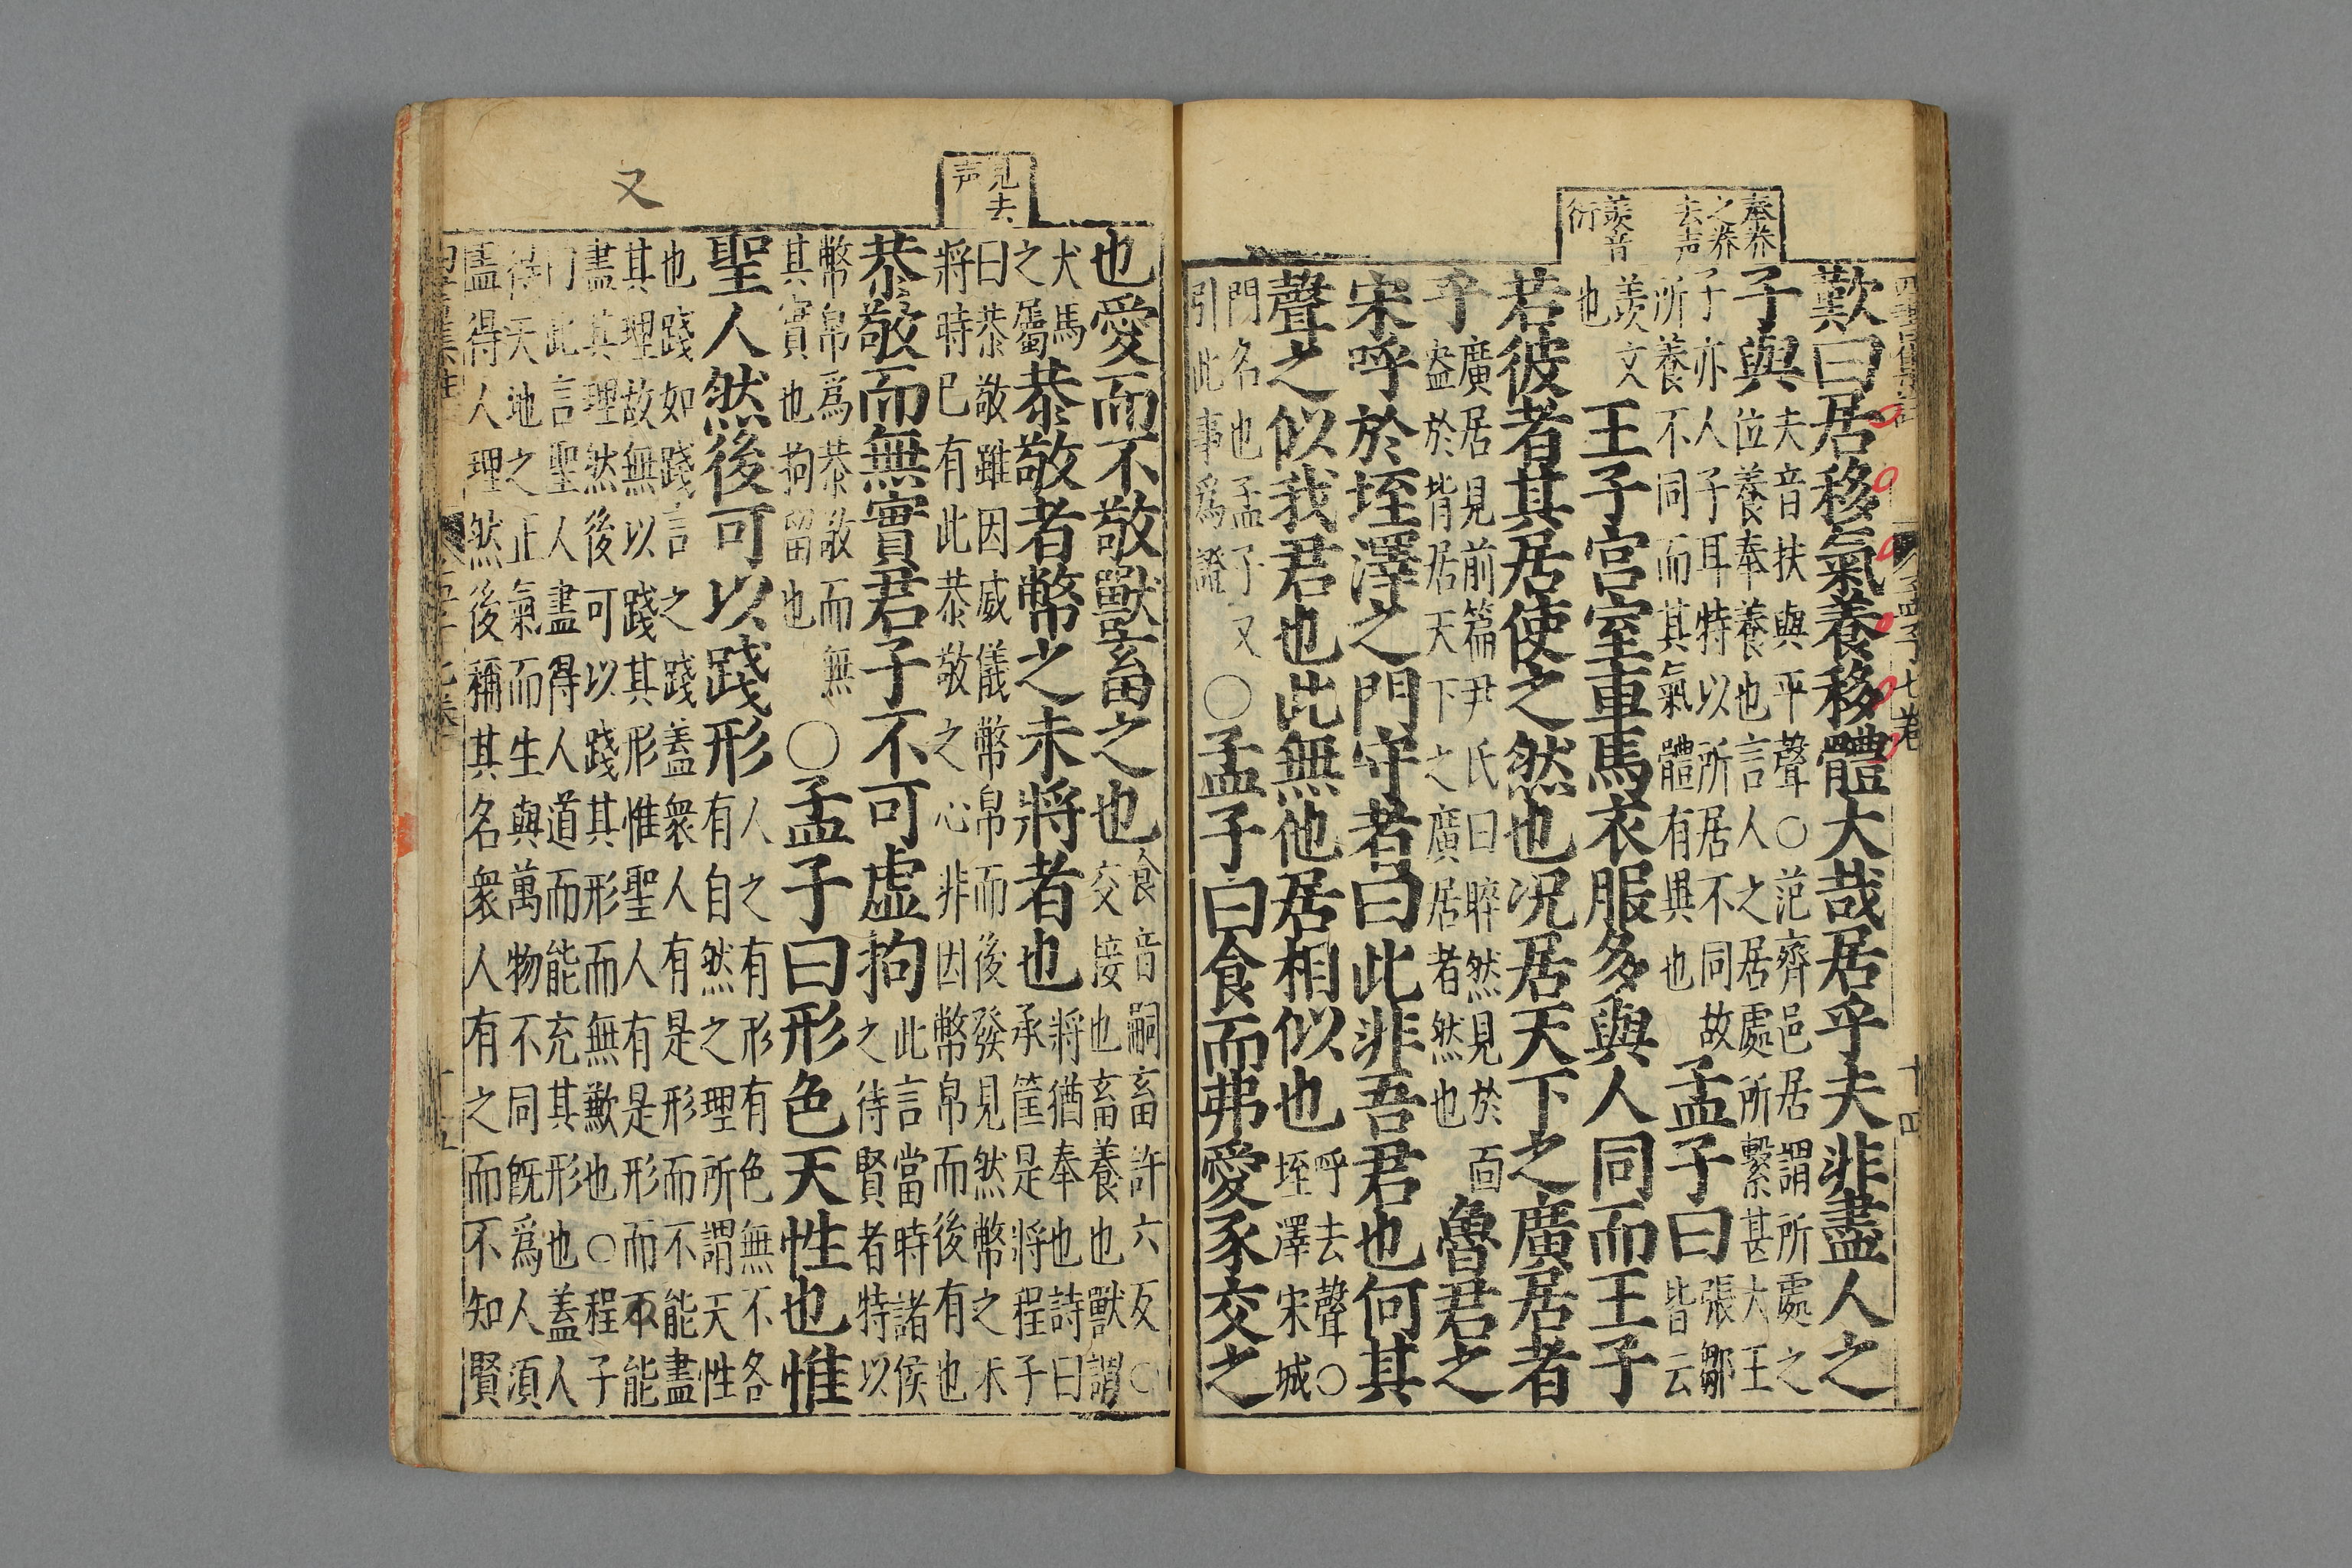 奉养
之养
去声
羨音
衍
孟子七卷
十四
歎曰居移氣養移體大哉居乎夫非盡人之
子與
夫音扶與平聲○范齊邑居謂所處之
位養奉養也言人之居處所繫甚大王
子亦人子耳特以所居不同故
所養不同而其氣體有異也
孟子曰
張鄒
皆云
羨文
也
王子宮室車馬衣服多與人同而王子
若彼者其居使之然也况居天下之廣居者
乎
廣居見前篇尹氏曰睟然見於面
盎於背居天下之廣居者然也
魯君之
宋呼於垤澤之門守者曰此非吾君也何其
聲之似我君也此無他居相似也
呼去聲○
垤澤宋城
門名也孟子又
引此事爲證
○孟子曰食而弗愛豕交之
見去
声
又
也愛而不敬獸畜之也
食音嗣畜許六反○
交接也畜養也獸謂
犬馬
之屬
恭敬者幣之未將者也
將猶奉也詩曰
承筐是將程子
曰恭敬雖因威儀幣帛而後發見然幣之未
將時已有此恭敬之心非因幣帛而後有也
恭敬而無實君子不可虛拘
此言當時諸侯
之待賢者特以
幣帛爲恭敬而無
其實也拘留也
○孟子曰形色天性也惟
聖人然後可以踐形
人之有形有色無不各
有自然之理所謂天性
也踐如踐言之踐蓋衆人有是形而不能盡
其理故無以踐其形惟聖人有是形而不能
盡其理然後可以踐其形而無歉也○程子
曰此言聖人盡得人道而能充其形也蓋人
得天地之正氣而生與萬物不同既爲人須
盡得人理然後稱其名衆人有之而不知賢